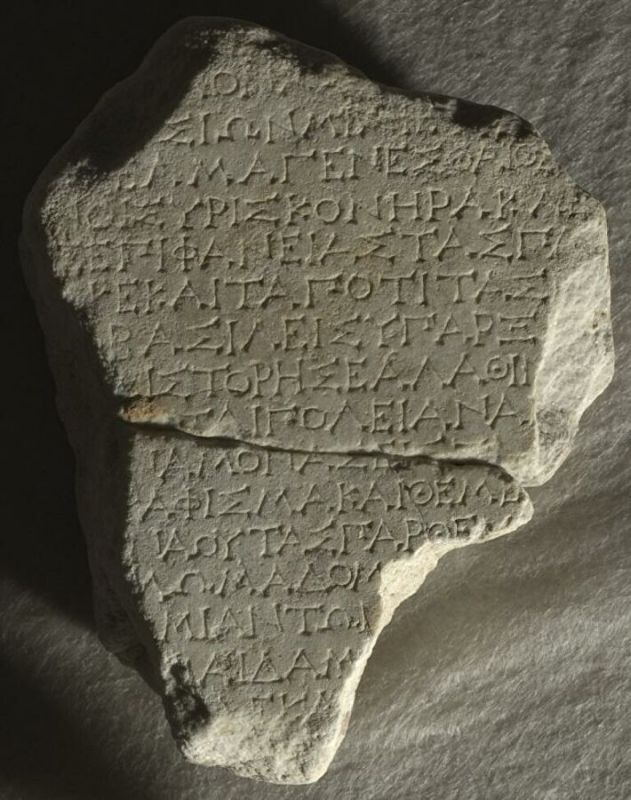 ΣΙΩΝΜ
ΛΜΑΓΕΝΕΣΘΑΙΘ
ΙΟΙΣΥΡΙΣΚΟΝΗΡΑΚΛ
ΕΠΙΦΑΝΕΙΑΣΤΑΣΠΑ
ΡΕΚΑΙΤΑΠΟΤΙΤΑΣ
ΒΑΣΙΛΕΙΣΥΠΑΡΞ
ΙΣΤΟΡΗΣΕΑΛΑΘΙ
ΤΑΙΠΟΛΕΙΑΝΑ
ΙΑΜΟΝΑΣ
ΑΦΙΣΜΑΚΑΙΘΕΜΕ
ΙΑΟΥΤΑΣΠΑΡΘΕ
ΛΩΜΑΔΟΜ
ΜΙΑΝΤΩΝ
ΑΙΔΑΜ